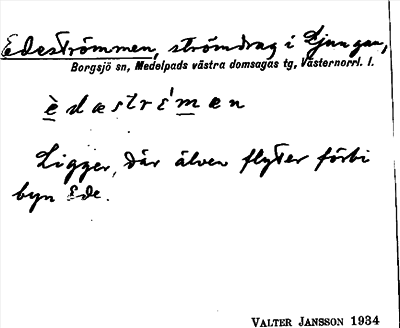 Edeströmmen, strömdrag i Ljungan,
Borgsjö sn, Medelpads västra domsagas tg, Västernorrl. l.
Ligger, där älven flyter förbi
byn Ede.
VALTER JANSSON 1934